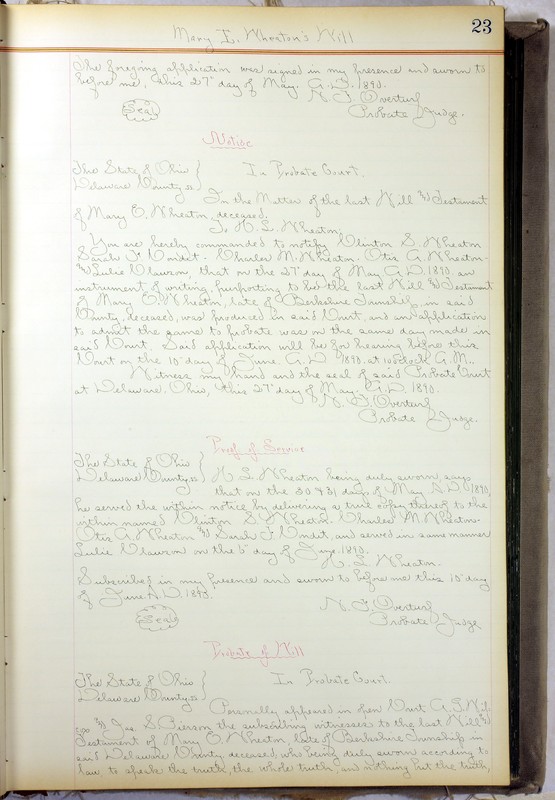 23
Mary E. Wheaton's Will
The foregoing application was signed in my presence and sworn to
before me, this 27" day of May. A.D. 1890.
N. F. Overturf
Seal
Probate Judge.
Notice
The State of Ohio }
Delaware County, ss }
In Probate Court.
In the Matter of the last Will & Testament
of Mary E. Wheaton, deceased.
To H. L. Wheaton,
You are hereby commanded to notify Clinton S. Wheaton
Sarah J. Condit - Charles M. Wheaton - Otis A. Wheaton -
& Lulie Clawson, that on the 27" day of May A.D. 1890 an
instrument of writing, purporting to be the last Will & Testament
of Mary E. Wheaton, late of Berkshire Township, in said
County, deceased, was produced in said Court, and an application
to admit the same to probate was on the same day made in
said Court. Said application will be for hearing before this
Court on the 10" day of June A.D. 1890. at 10 o'clock A.M..
Witness my hand and the seal of said Probate Court
at Delaware, Ohio, this 27" day of May. A.D. 1890.
N. F. Overturf
Probate Judge.
Proof of Service
The State of Ohio }
Delaware County, ss }
H. L. Wheaton being duly sworn, says
that on the 30 & 31 days of May A.D. 1890,
he served the within notice by delivering a true copy thereof to the
within named Clinton S. Wheaton. Charles M. Wheaton -
Otis A. Wheaton & Sarah J. Condit, and served in same manner
Lulie Clawson on the day of June. 1890.
H. L. Wheaton.
Subscribed in my presence and sworn to before me this 10" day
of June A.D. 1890.
N. F. Overturf
Seal
Probate Judge
Probate of Will
The State of Ohio }
Delaware County, ss }
In Probate Court.
Personally appeared in open Court
& Jas. S. Pierson the subscribing witnesses to the last Will &
Testament of Mary E. Wheaton, late of Berkshire Township in
said Delaware County, deceased, who being duly sworn according to
law to speak the truth, the whole truth, and nothing but the truth,